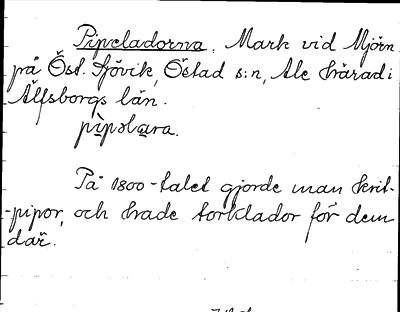 Pipeladorna. Mark vid Mjörn
på Öst. Sjövik, Östad s:n, Ale härad i
Älfsborgs län.
pìpəlɑ̀ra.
På 1800-talet gjorde man krit-
-pipor, och hade torklador för dem
där.